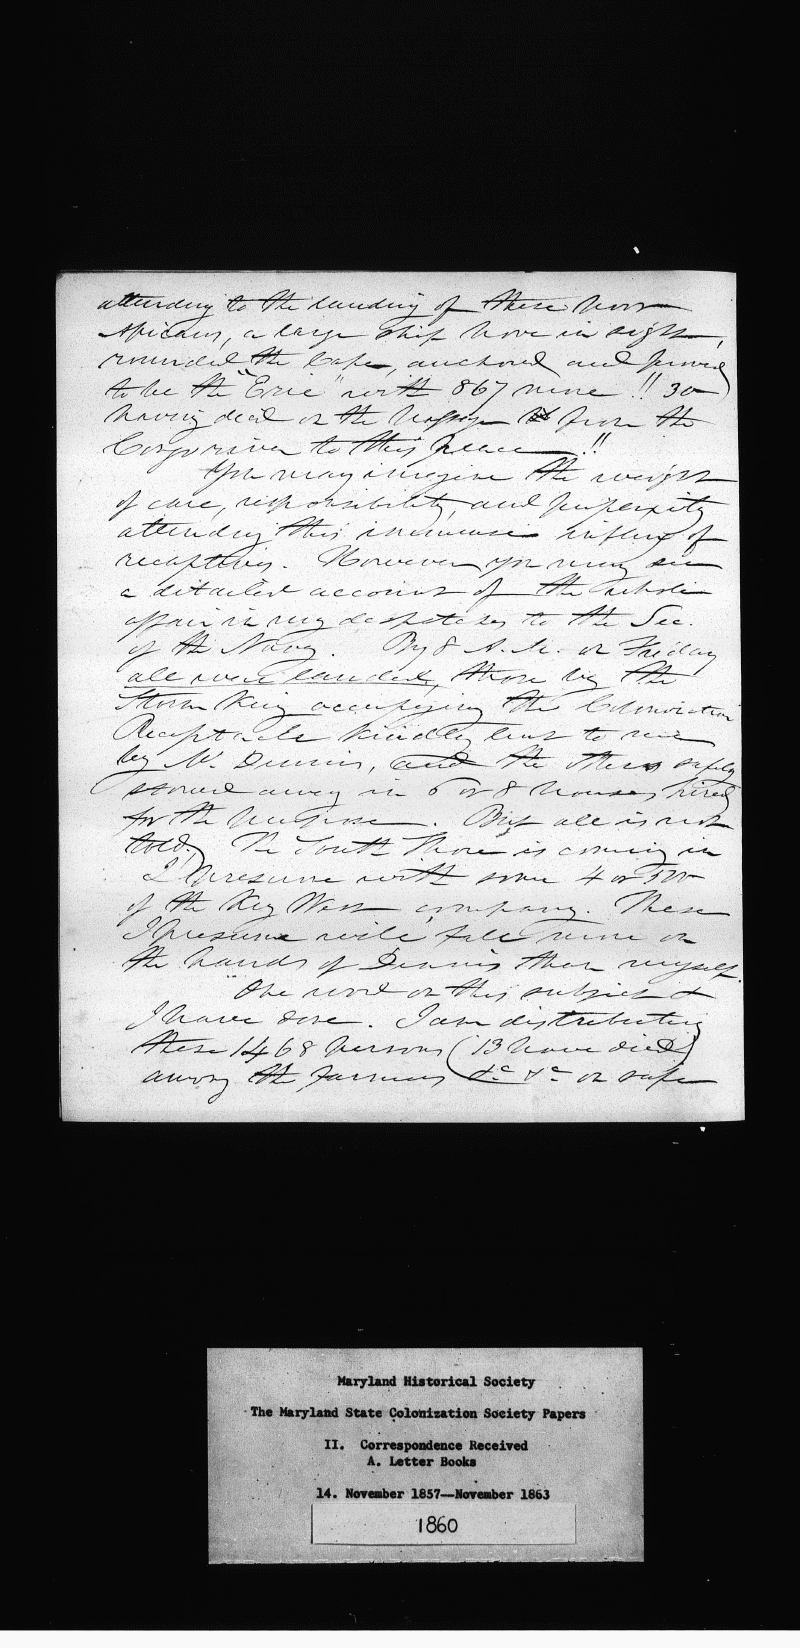 attending to the landing of these poor
Africans, a large ship hove in sight,
rounded the Cape, anchored and proved
to be the "Erie" with 867 more !! 30
having died on the passage from the
Congo river to this place !!
You may imagine the weight
of care, responsibility, and perplexity
attending this immense influx of
recaptives. However you may see
a detailed account of the whole
affair in my despatches to the Sec.
of the Navy. By 8 A.M. on Friday
all were landed, those by the
Storm King occupying the Colonization
Receptacle kindly lent to me
by Mr. Dennis, and the others safely
stowed away in 6 or 8 houses hired
for the purpose. But all is not
told! The South Shore is coming in
I presume with some 4 or 500
of the Key West company. These
I presume will fall more on
the hands of Dennis than myself.
One word on this subject &
I have done. I am distributing
these 1468 persons (13 have died)
among the farmers &c &c on safe
Maryland Historical Society
The Maryland State Colonization Society Papers
II. Correspondence Received
A. Letter Books
14. November 1857—November 1863
1860